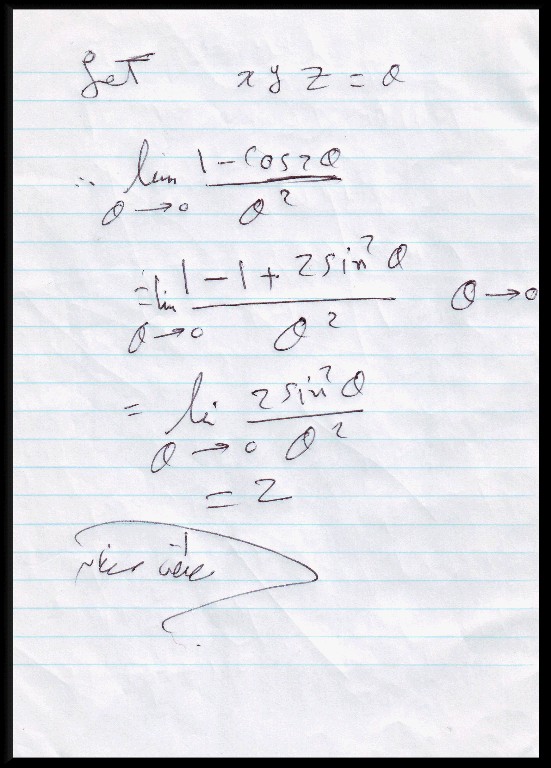 Let xyz = θ
∴ lim θ→0 1 - cos2θ / θ²
= lim θ→0 1 - 1 + 2 sin² θ / θ² θ→0
= li θ→0 2 sin² θ / θ²
= 2